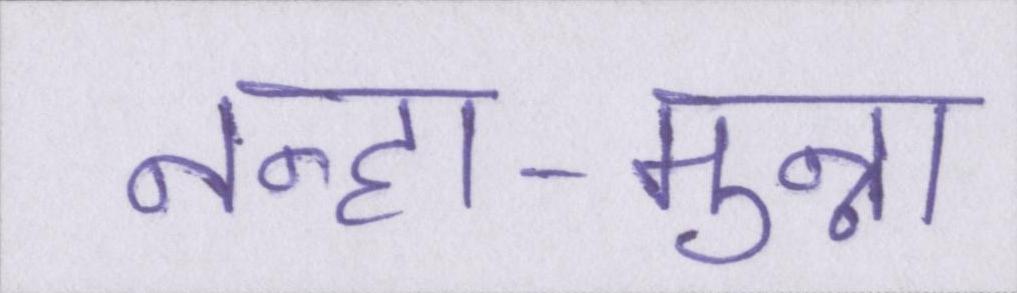 नन्हा-मुन्ना